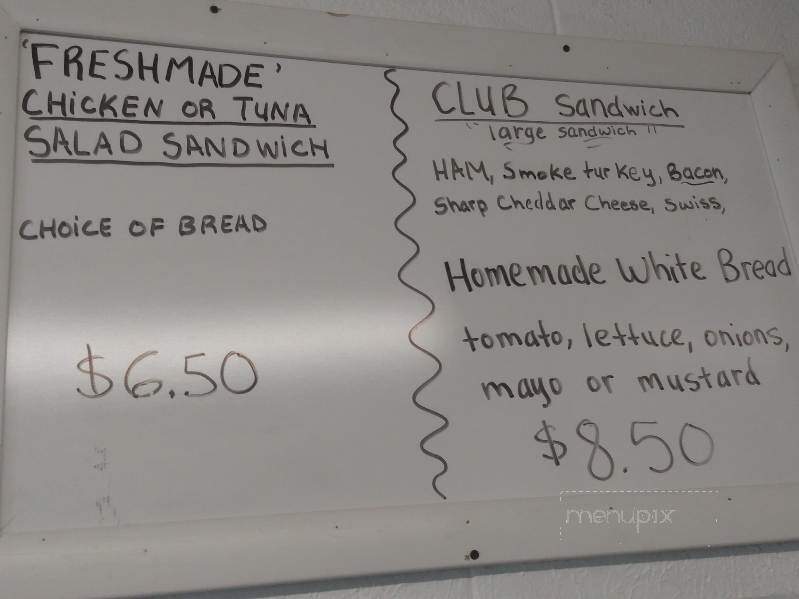 'FRESHMADE'
CHiCKEN OR TUNA
SALAD SANDWiCH
CHOiCE OF BREAD
$6.50
CLUB Sandwich
"large sandwich"
HAM, Smoke turkey, Bacon,
Sharp Cheddar Cheese, Swiss,
Homemade White Bread
tomato, lettuce, onions,
mayo or mustard
$8.50
menupix